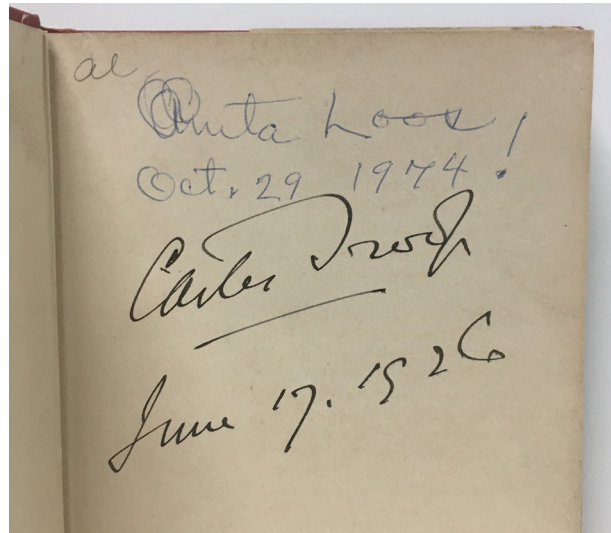 al
Anita Loos!
Oct. 29 1974
Carter
June 17. 1926